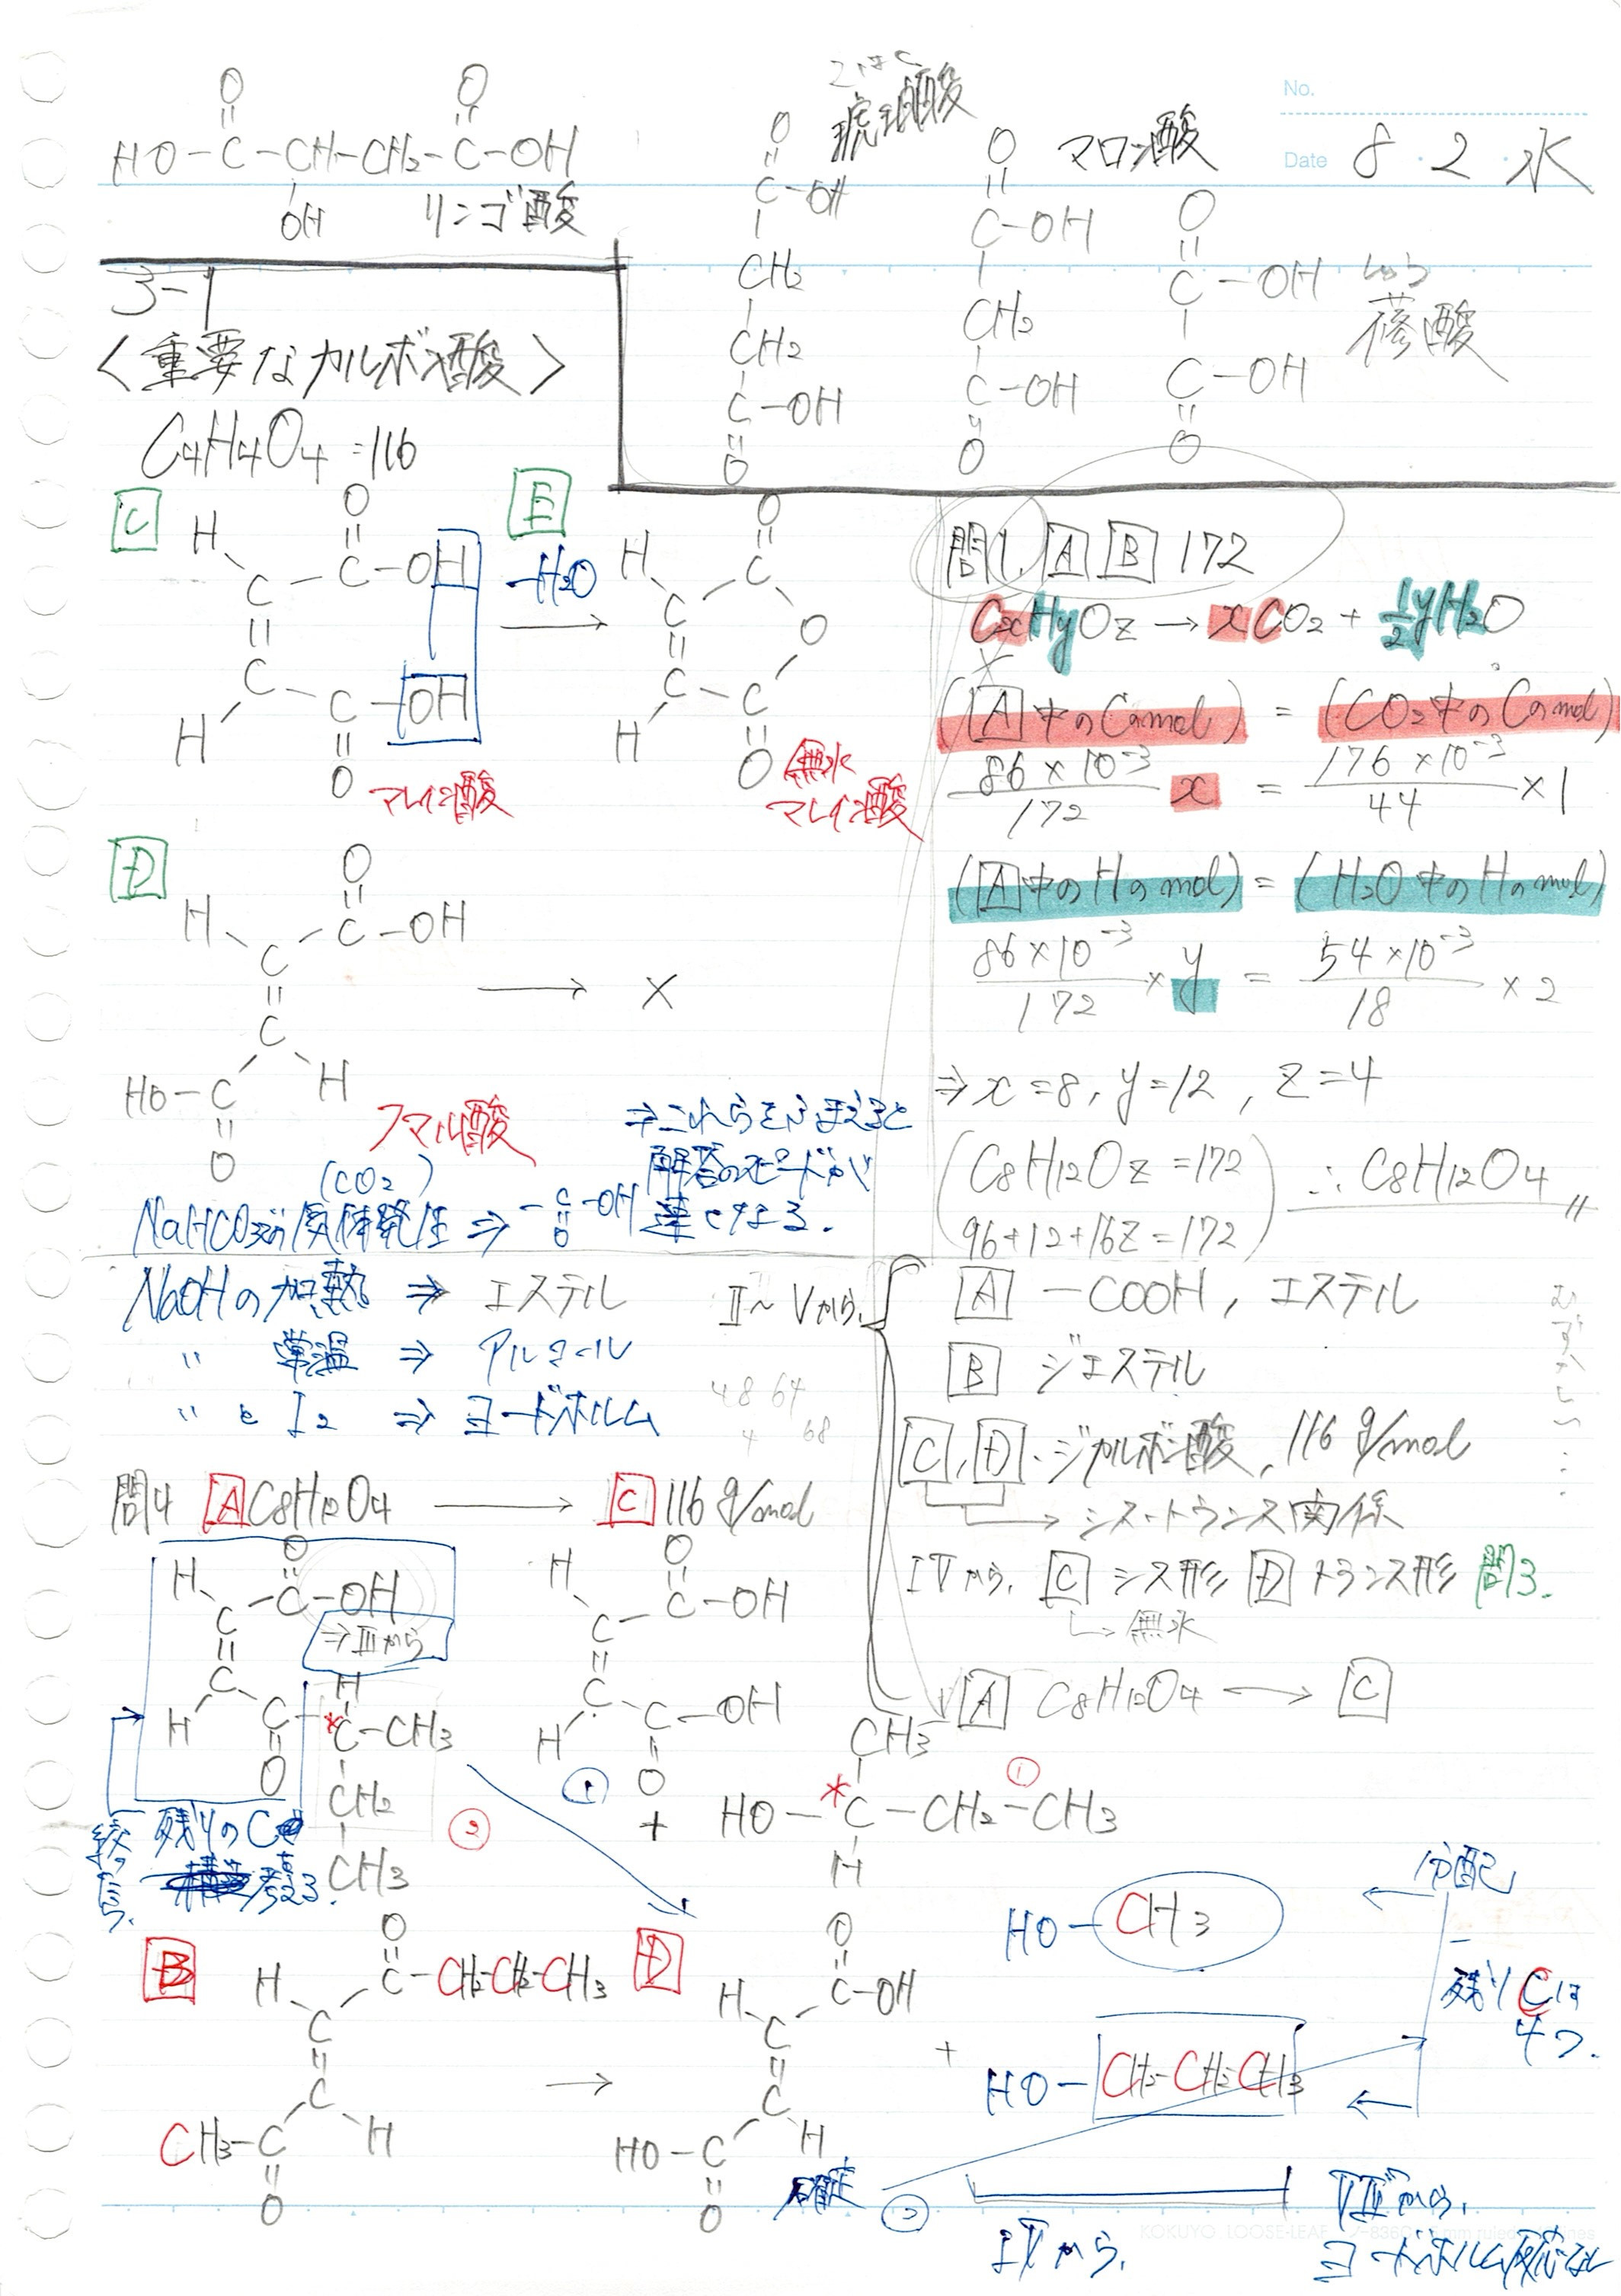 No.
Date 8・2・水
HO-C-CH-CH2-C-OH
O
O
OH
リンゴ酸
琥珀酸
O
C-OH
CH2
CH2
C-OH
O
マロン酸
O
C-OH
CH2
C-OH
O
しゅう
蓚酸
O
C-OH
C-OH
O
3-1
〈重要なカルボン酸〉
C4H4O4=116
C
H
O
C-C-OH
C-C-OH
H
O
マレイン酸
E
-H2O
H
O
C
C
O
C-C
H
O
無水
マレイン酸
D
H
O
C-C-OH
C
HO-C
H
O
→ ×
フマル酸
(CO2)
NaHCO3の気体発生 ⇒ -C-OH
O
⇒これらをふまえると
解答のスピードが
速くなる.
NaOHの加熱 ⇒ エステル
〃 常温 ⇒ アルコール
〃 と I2 ⇒ ヨードホルム
問1. A B 172
CxHyOz → xCO2 + 1/2yH2O
(A中のCのmol) = (CO2中のCのmol)
86×10⁻³/172 x = 176×10⁻³/44 ×1
(A中のHのmol) = (H2O中のHのmol)
86×10⁻³/172 × y = 54×10⁻³/18 ×2
⇒ x=8, y=12, z=4
(C8H12Oz=172
96+12+16z=172)
∴ C8H12O4
II~Vから.
A -COOH, エステル
B ジエステル
C, D. ジカルボン酸, 116 g/mol
→ シス-トランス関係
IVから, C シス形 D トランス形 問3.
→無水
A C8H12O4 → C
むずかしい…
48 64
4 68
問4 A C8H12O4 → C 116 g/mol
H
O
C-C-OH
⇒IIIから
C
H
C
O
H
*C-CH3
CH2
CH3
②
残りのC
考える.
H
O
C-C-OH
C-C-OH
H
O
①
+
CH3
HO-*C-CH2-CH3
H
①
B
H
O
C-CH2-CH2-CH3
C
C
CH3-C
H
O
→
D
H
O
C-OH
C
C
HO-C
H
O
+
HO-CH3
HO-CH2-CH2-CH3
分配
残りCは
4つ.
確定
IVから.
VIIから.
ヨードホルム反応なし
KOKUYO LOOSE-LEAF